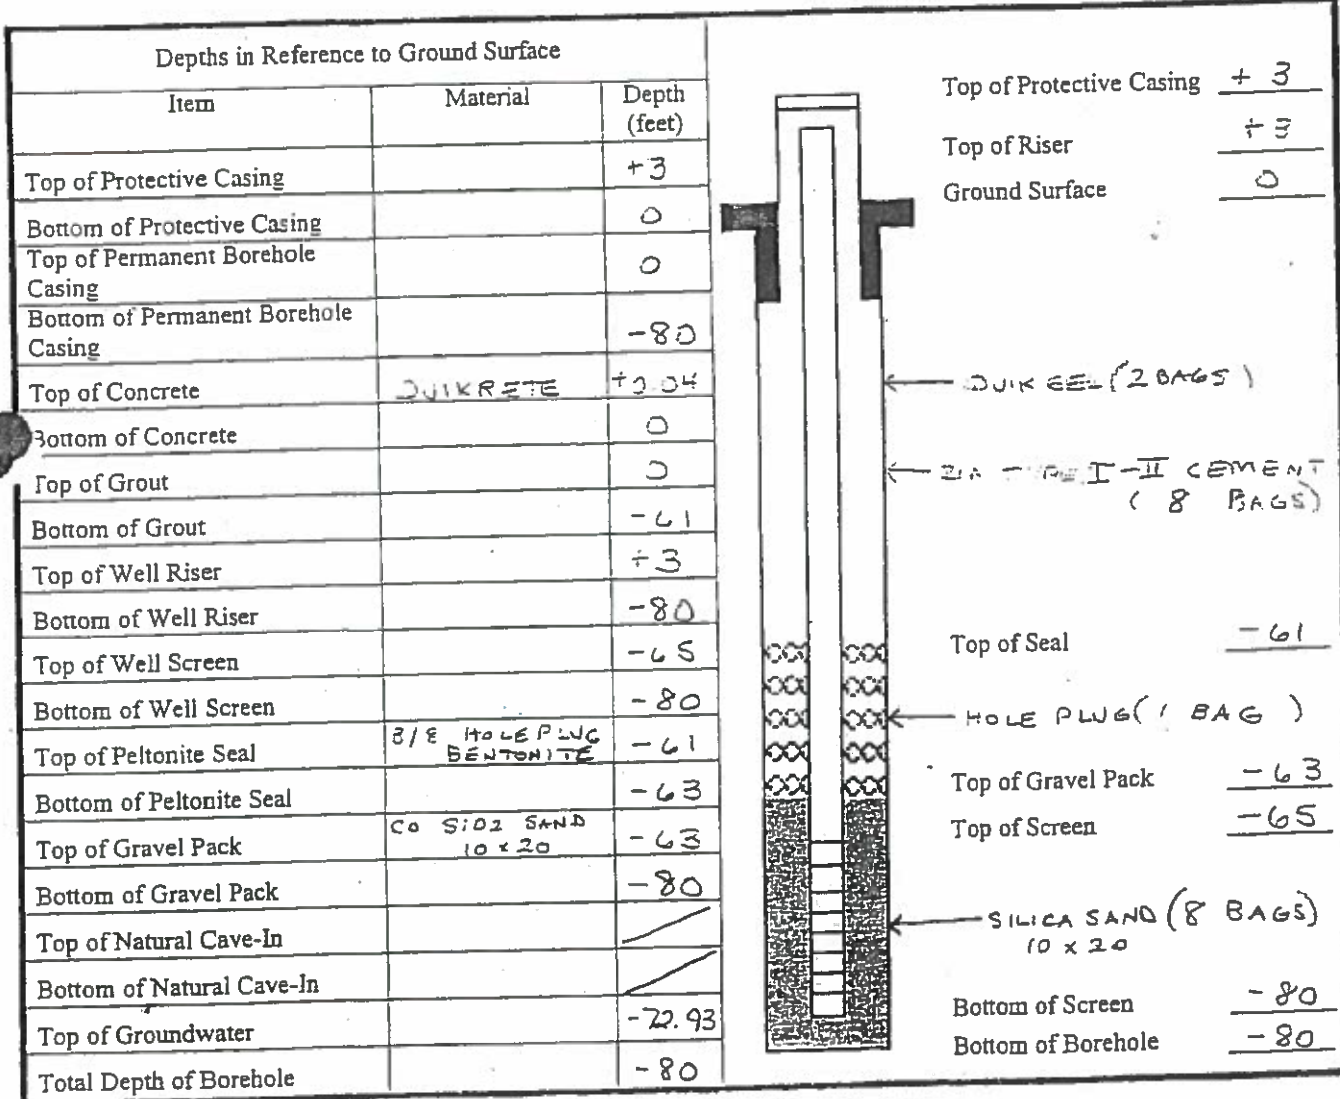 Depths in Reference to Ground Surface
Item Material Depth (feet)
Top of Protective Casing +3
Bottom of Protective Casing 0
Top of Permanent Borehole Casing 0
Bottom of Permanent Borehole Casing -80
Top of Concrete QUIKRETE
Bottom of Concrete 0
Top of Grout 0
Bottom of Grout -61
Top of Well Riser +3
Bottom of Well Riser -80
Top of Well Screen -65
Bottom of Well Screen -80
Top of Peltonite Seal 3/8 HOLE PLUG BENTONITE -61
Bottom of Peltonite Seal -63
Top of Gravel Pack CO SiO2 SAND 10 x 20 -63
Bottom of Gravel Pack -80
Top of Natural Cave-In
Bottom of Natural Cave-In
Top of Groundwater -72.93
Total Depth of Borehole -80
Top of Protective Casing +3
Top of Riser +3
Ground Surface 0
(2 BAGS)
I-II CEMENT
(8 BAGS)
Top of Seal -61
HOLE PLUG (1 BAG)
Top of Gravel Pack -63
Top of Screen -65
SILICA SAND (8 BAGS)
10 x 20
Bottom of Screen -80
Bottom of Borehole -80